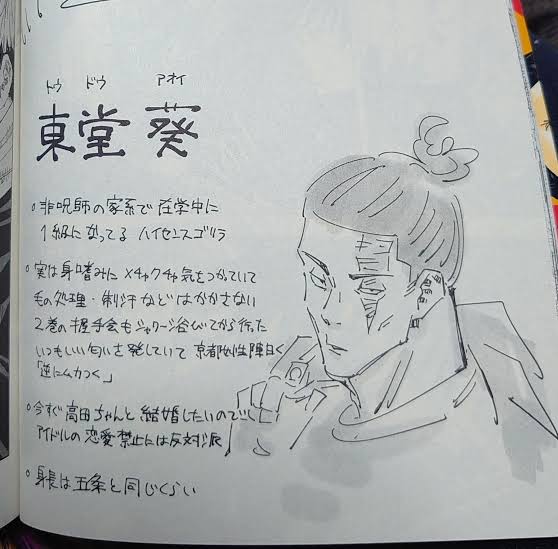 トウ ドウ アオイ
東堂 葵
○非呪師の家系で在学中に
1級になってる ハイセンスゴリラ
○実は身嗜みにメチャクチャ気をつかっていて
毛の処理・制汗などはかかさない
2巻の握手会もシャワー浴びてから行った
いつもいい匂いを発していて 京都女性陣曰く
「逆にムカつく。」
○今すぐ高田ちゃんと結婚したいので
アイドルの恋愛禁止には反対派
○身長は五条と同じくらい